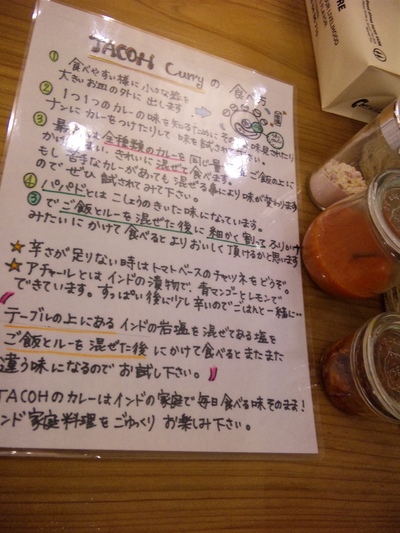 TACOH Curryの食べ方
① 食べやすい様に小さな器を
大きいお皿の外に出します。
② 1つ1つのカレーの味を知るために
味見されたり
ナンにカレーをつけたりして味を試され
③ 全種類のカレーを同じ量
ご飯の上に
かけ きれいに混ぜて食べます。
もし苦手なカレーがあっても混ぜる事により味が変わります
のでぜひ試されてみて下さい。
④ パパドとはこしょうのきいた味になっています。
③でご飯とルーを混ぜた後に細かく割ってふりかけ
みたいにかけて食べるとよりおいしく頂けるかと思います
★ 辛さが足りない時はトマトベースのチャツネをどうぞ。
★ アチャールとはインドの漬物で、青マンゴーとレモンで
できています。すっぱい後に少し辛いのでごはんと一緒に…
テーブルの上にあるインドの岩塩を混ぜてある塩を
ご飯とルーを混ぜた後にかけて食べるとまたまた
違う味になるのでお試し下さい。
TACOHのカレーはインドの家庭で毎日食べる味そのまま!
ンド家庭料理をごゆっくりお楽しみ下さい。